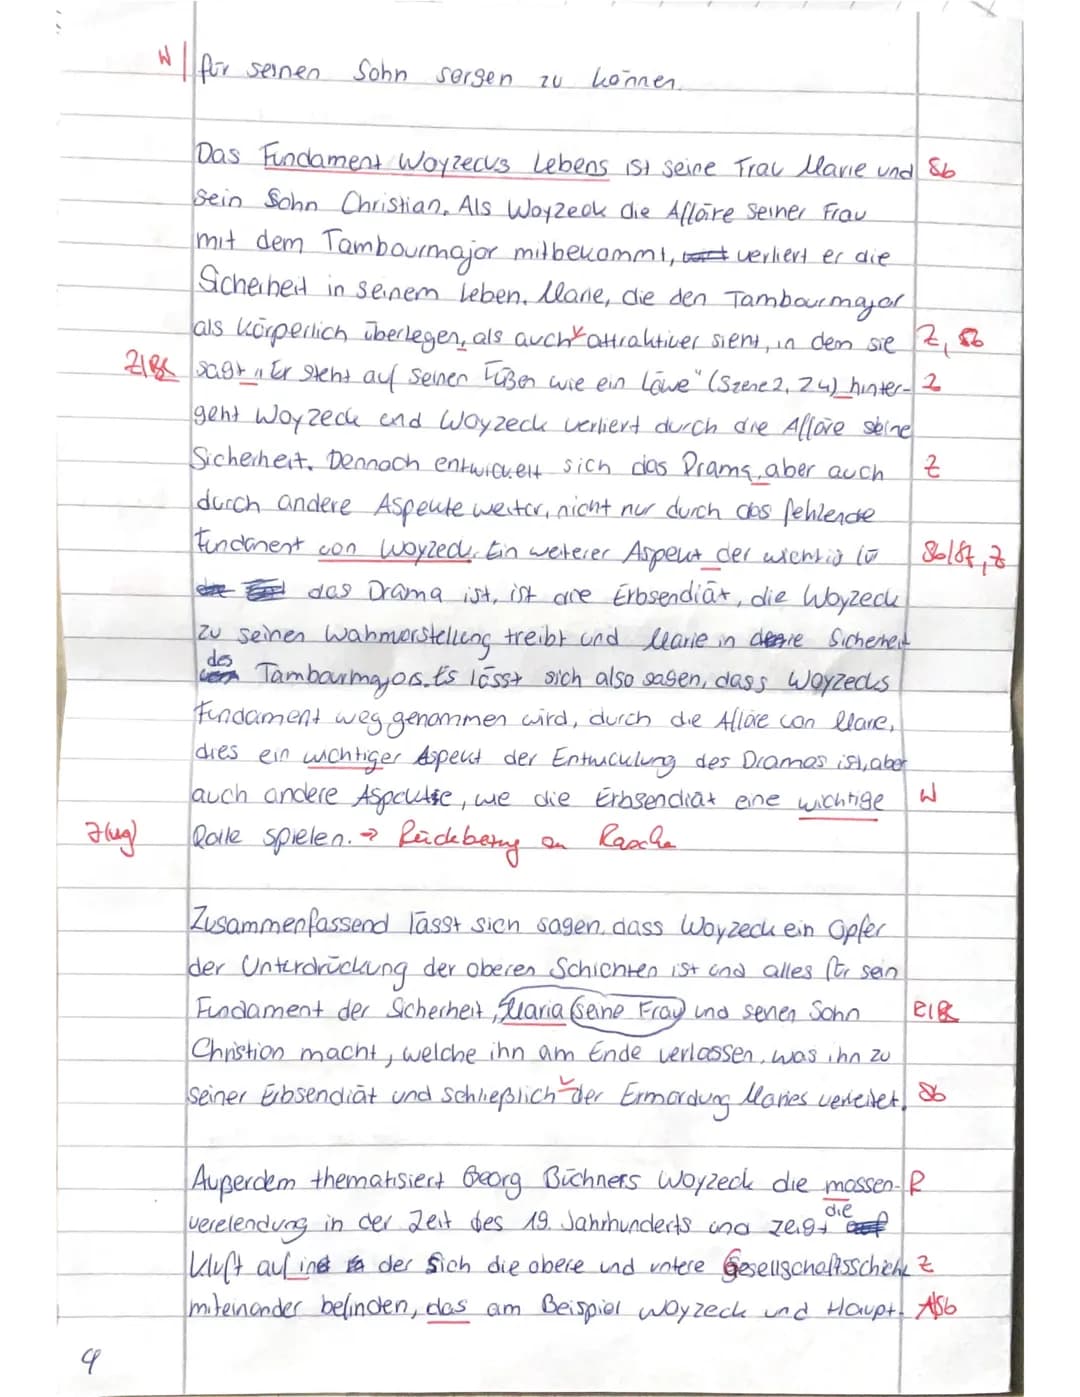 W | für seinen Sohn sorgen zu können.
Das Fundament Woyzecks Lebens ist seine Frau Marie und Sb
sein Sohn Christian. Als Woyzeck die Affäre seiner Frau
mit dem Tambourmajor mitbekommt, verliert er die
Sicherheit in seinem Leben. Marie, die den Tambourmajor
als körperlich überlegen, als auch attraktiver sieht, in dem sie Z, Sb
Z/Bk sagt „Er steht auf seinen Füßen wie ein Löwe" (Szene 2, Z 4) hinter- Z
geht Woyzeck und Woyzeck verliert durch die Affäre seine
Sicherheit. Dennoch entwickelt sich das Drama, aber auch Z
durch andere Aspekte weiter, nicht nur durch das fehlende
Fundament von Woyzeck. Ein weiterer Aspekt der wichtig fü Sb/St, Z
das Drama ist, ist die Erbsendiät, die Woyzeck
zu seinen Wahnvorstellung treibt und Marie in die Sicherheit
des Tambourmajors. Es lässt sich also sagen, dass Woyzecks
Fundament weg genommen wird, durch die Affäre von Marie,
dies ein wichtiger Aspekt der Entwicklung des Dramas ist, aber
auch andere Aspekte, wie die Erbsendiät eine wichtige W
Rolle spielen. → Rückbezug an Rasche
Zusammenfassend lässt sich sagen, dass Woyzeck ein Opfer
der Unterdrückung der oberen Schichten ist und alles für sein
Fundament der Sicherheit, Maria (seine Frau) und seinen Sohn
Christian macht, welche ihn am Ende verlassen, was ihn zu
seiner Erbsendiät und schließlich der Ermordung Maries verleitet. Sb
Außerdem thematisiert Georg Büchners Woyzeck die massen- R
verelendung in der Zeit des 19. Jahrhunderts und zeigt die
Kluft auf in der sich die obere und untere Gesellschaftsschicht Z
miteinander befinden, das am Beispiel Woyzeck und Haupt-
9